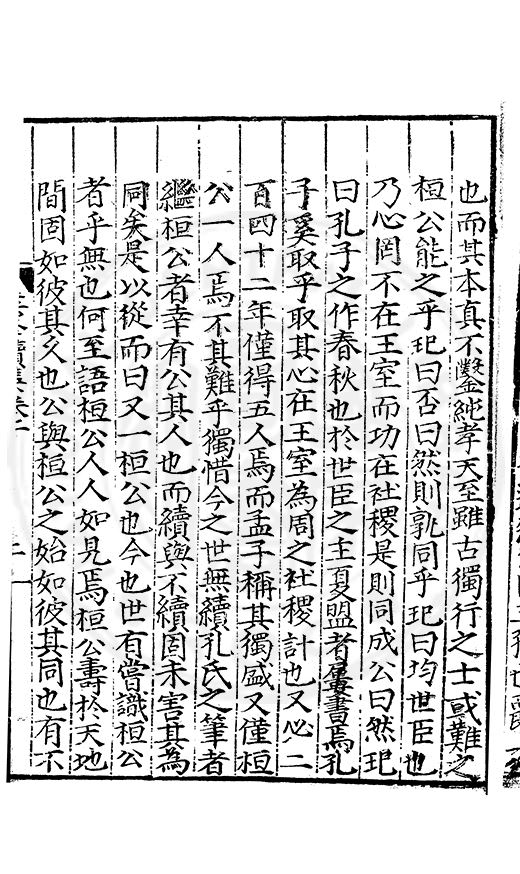 也而其本真不鑿純孝天至雖古獨行之士或難之
桓公能之乎玘曰否曰然則孰同乎玘曰均世臣也
乃心罔不在王室而功在社稷是則同成公曰然玘
曰孔子之作春秋也於世臣之主夏盟者屢書焉孔
子奚取乎取其心在王室為周之社稷計也又必二
百四十二年僅得五人焉而孟子稱其獨盛又僅桓
公一人焉不其難乎獨惜今之世無續孔氏之筆者
繼桓公者幸有公其人也而續與不續固未害其為
同矣是以從而曰又一桓公也今也世有嘗識桓公
者乎無也何至語桓公人人如見焉桓公壽於天地
間固如彼其久也公與桓公之始如彼其同也有不